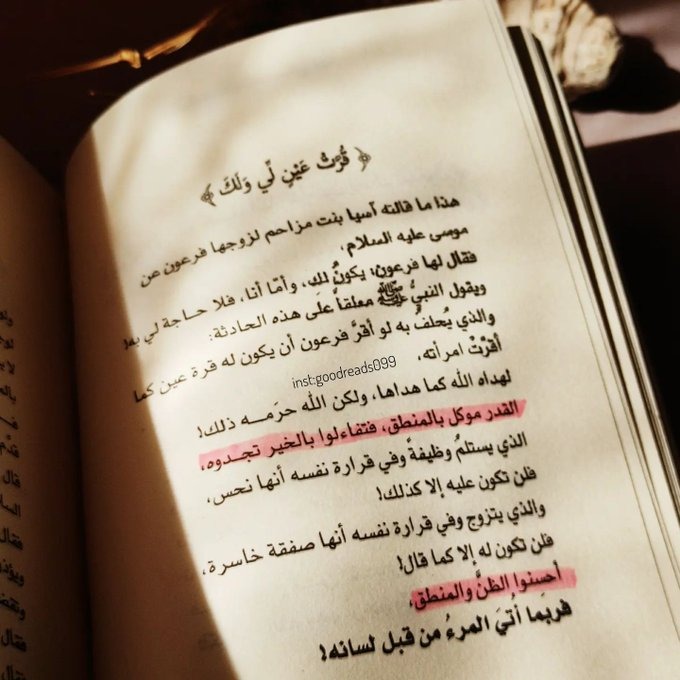 ﴿ قُرَّتُ عَيْنٍ لِّي وَلَكَ ﴾
هذا ما قالته آسيا بنت مزاحم لزوجها فرعون عن
موسى عليه السلام،
فقال لها فرعون: يكونُ لك، وأمّا أنا، فلا حاجة لي به!
ويقول النبيُّ ﷺ معلقاً على هذه الحادثة:
والذي يُحلفُ به لو أقرَّ فرعون أن يكون له قرة عين كما
أقرَّتْ امرأته،
لهداه الله كما هداها، ولكن الله حرَمـه ذلك!
القدر موكل بالمنطق، فتفاءلوا بالخير تجدوه،
الذي يستلمُ وظيفةً وفي قرارة نفسه أنها نحس،
فلن تكون عليه إلا كذلك!
والذي يتزوج وفي قرارة نفسه أنها صفقة خاسرة،
فلن تكون له إلا كما قال!
أحسنوا الظنَّ والمنطق،
فربما أُتيَ المرءُ من قبل لسانه!
inst:goodreads099
قال
فقال
فقال